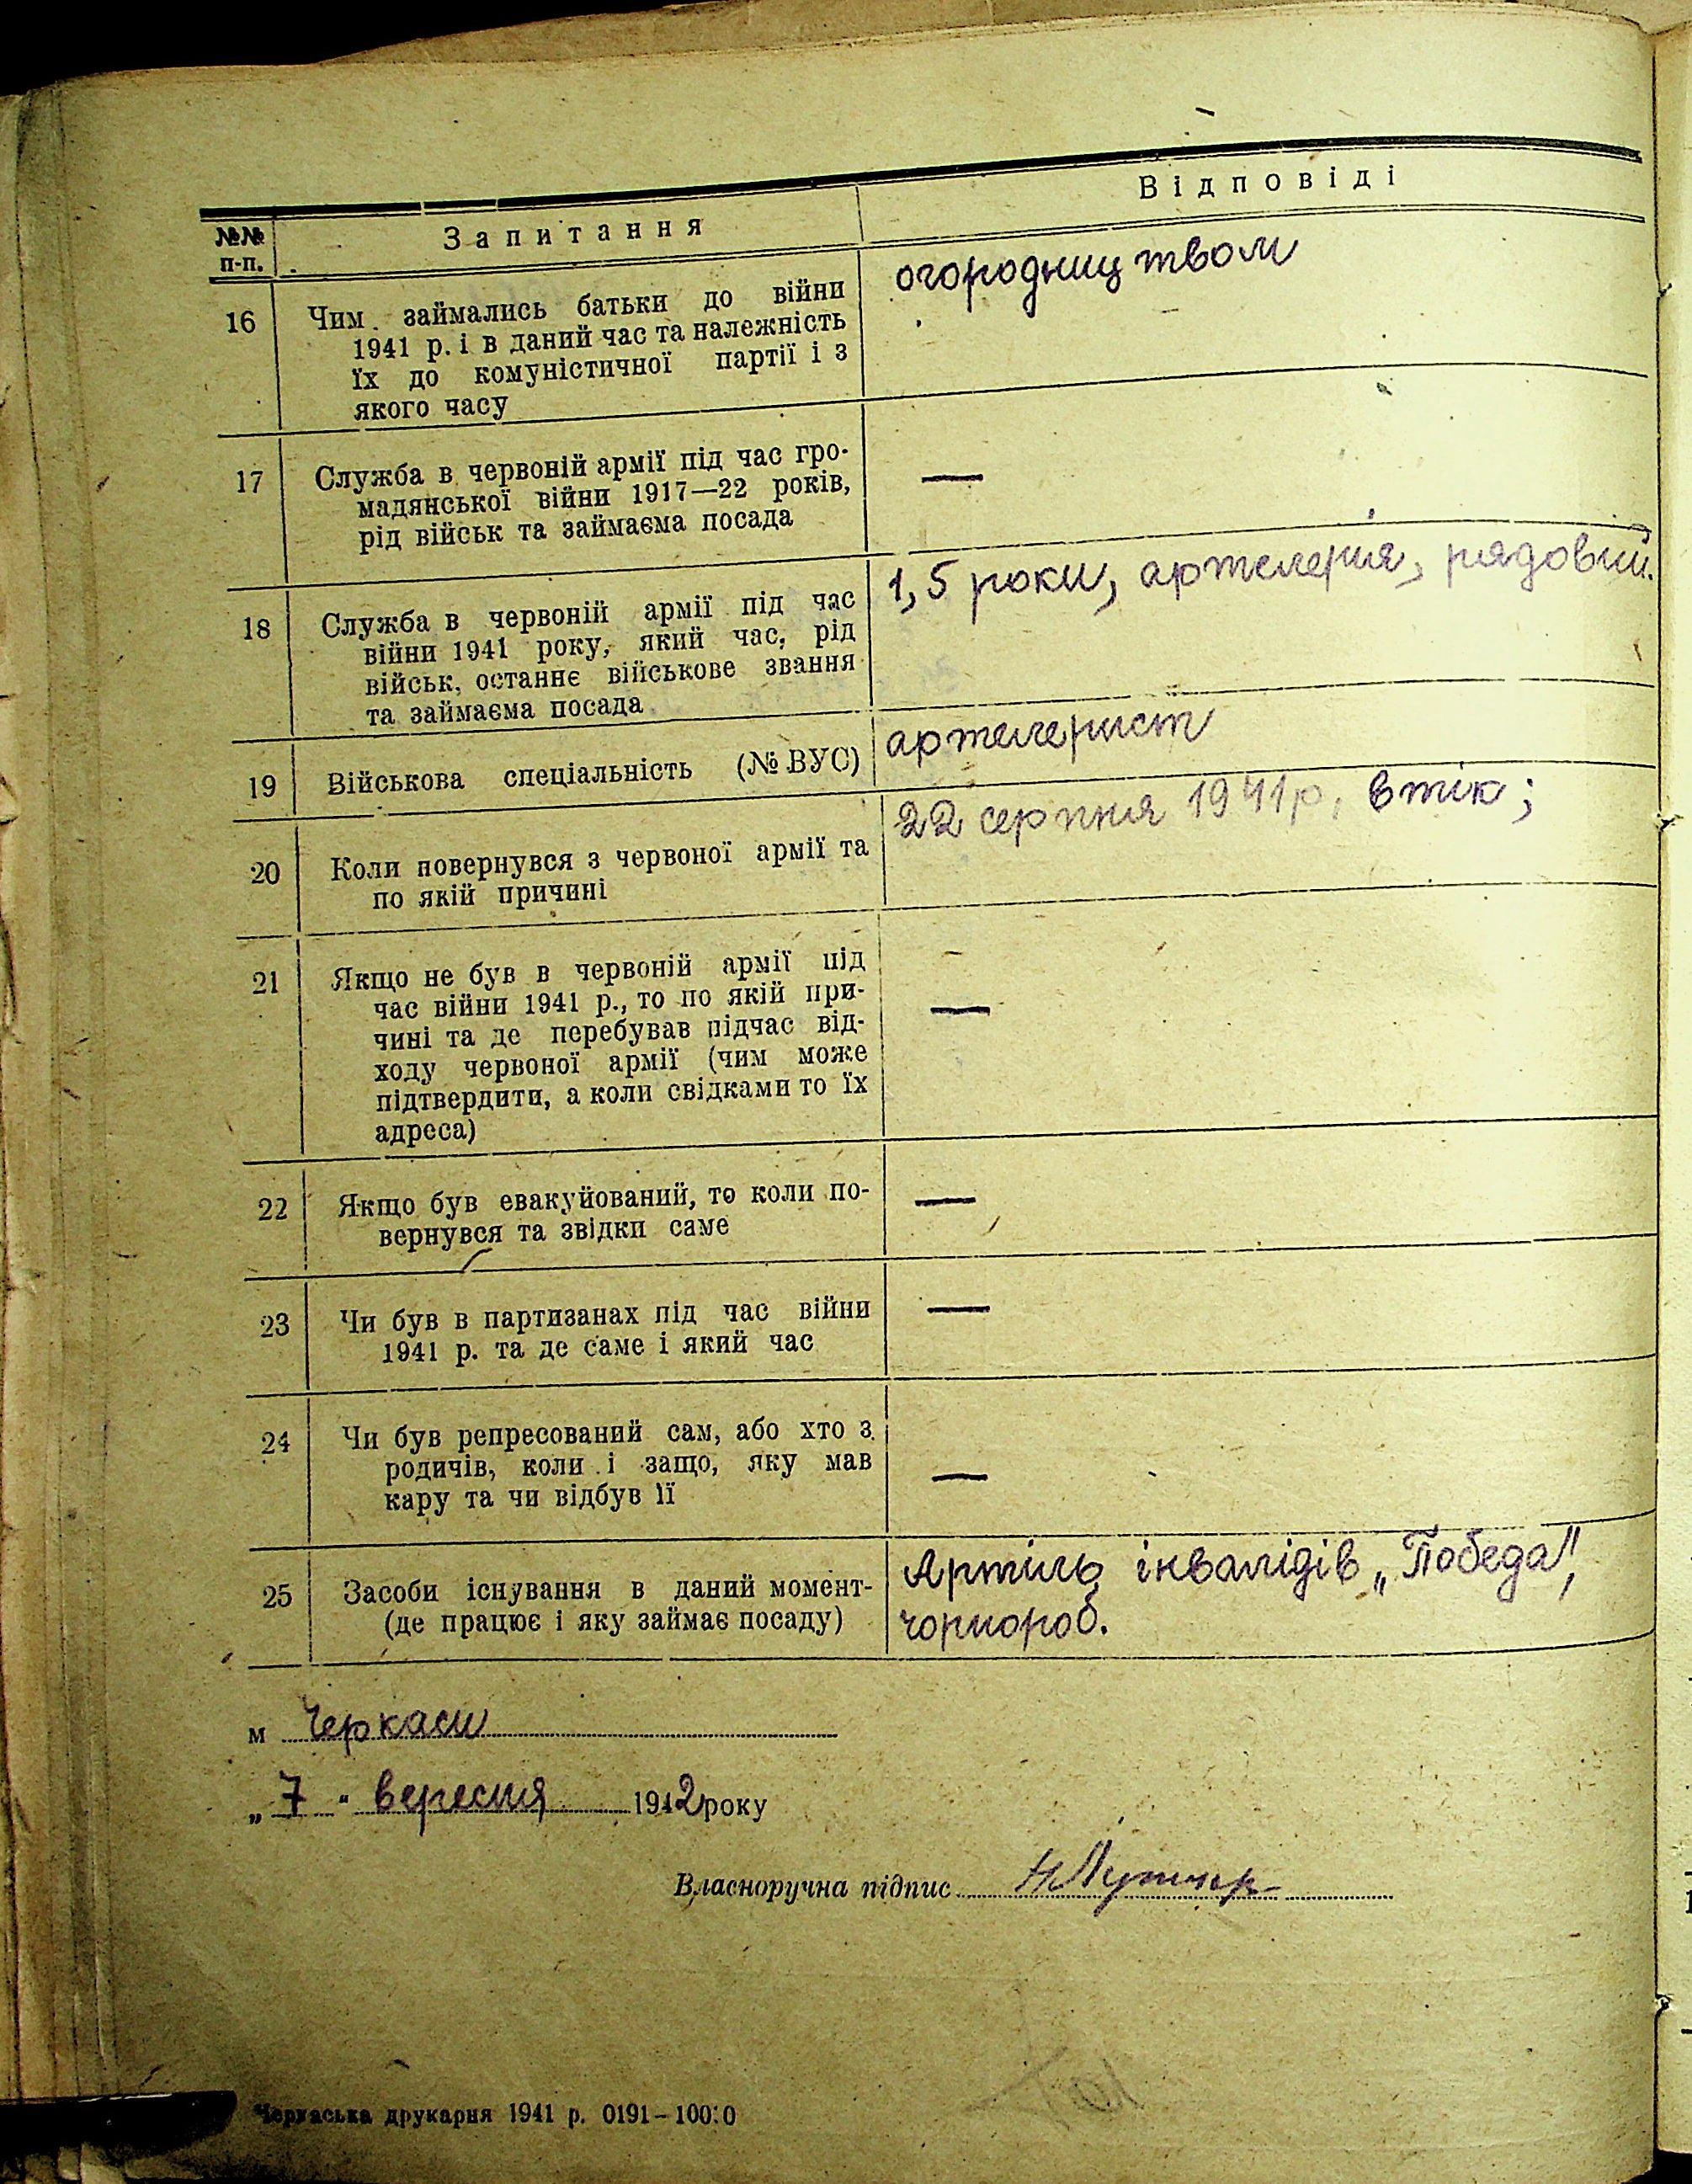 №№ п-п.
Запитання
Відповіді
16
Чим займались батьки до війни
1941 р. і в даний час та належність
їх до комуністичної партії і з
якого часу
огородництвом
17
Служба в червоній армії під час гро-
мадянської війни 1917—22 років,
рід військ та займаєма посада
—
18
Служба в червоній армії під час
війни 1941 року, який час, рід
військ, останнє військове звання
та займаєма посада
1,5 роки, артелерия, рядовий.
19
Військова спеціальність (№ ВУС)
артелерист
20
Коли повернувся з червоної армії та
по якій причині
22 серпня 1941 р, втік;
21
Якщо не був в червоній армії під
час війни 1941 р., то по якій при-
чині та де перебував підчас від-
ходу червоної армії (чим може
підтвердити, а коли свідками то їх
адреса)
—
22
Якщо був евакуйований, то коли по-
вернувся та звідки саме
—
23
Чи був в партизанах під час війни
1941 р. та де саме і який час
—
24
Чи був репресований сам, або хто з
родичів, коли і защо, яку мав
кару та чи відбув її
—
25
Засоби існування в даний момент-
(де працює і яку займає посаду)
Артіль інвалідів „Победа",
чорнороб.
м Черкаси
„7" вересня 1942 року
Власноручна підпис
Черкаська друкарня 1941 р. 0191-10000